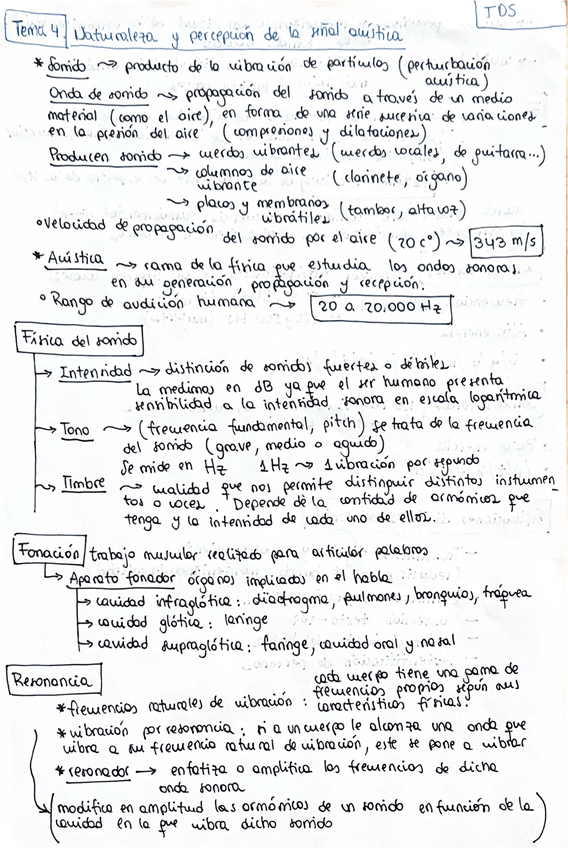 TDS
Tema 4 Naturaleza y percepción de la señal acústica
* Sonido ⤳ producto de la vibración de partículas (perturbación
acústica)
Onda de sonido ⤳ propagación del sonido a través de un medio
material (como el aire), en forma de una serie sucesiva de variaciones
en la presión del aire (compresiones y dilataciones)
Producen sonido → cuerdas vibrantes (cuerdas vocales, de guitarra...)
⤳ columnas de aire (clarinete, órgano)
vibrante
⤳ placas y membranas (tambor, altavoz)
vibrátiles
• Velocidad de propagación
del sonido por el aire (20 Cº) ⤳ 343 m/s
* Acústica ⤳ rama de la física que estudia las ondas sonoras.
en su generación, propagación y recepción.
• Rango de audición humana ⤳ 20 a 20.000 Hz
Física del sonido
→ Intensidad ⤳ distinción de sonidos fuertes o débiles
La medimos en dB ya que el ser humano presenta
sensibilidad a la intensidad sonora en escala logarítmica
→ Tono ⤳ (frecuencia fundamental, pitch) Se trata de la frecuencia
del sonido (grave, medio o agudo)
Se mide en Hz 1Hz ⤳ 1 vibración por segundo
→ Timbre ⤳ cualidad que nos permite distinguir distintos instrumen
tos o voces. Depende de la cantidad de armónicos que
tenga y la intensidad de cada uno de ellos.
Fonación trabajo muscular realizado para articular palabras
→ Aparato fonador órganos implicados en el habla
→ cavidad infraglótica: diafragma, pulmones, bronquios, tráquea
→ cavidad glótica: laringe
→ cavidad supraglótica: faringe, cavidad oral y nasal
Resonancia
* frecuencias naturales de vibración: cada cuerpo tiene una gama de
frecuencias propias según sus
características físicas.
* vibración por resonancia: si a un cuerpo le alcanza una onda que
vibra a su frecuencia natural de vibración, este se pone a vibrar
* resonador → enfatiza o amplifica las frecuencias de dicha
onda sonora
(modifica en amplitud las armónicos de un sonido en función de la
cavidad en la que vibra dicho sonido)